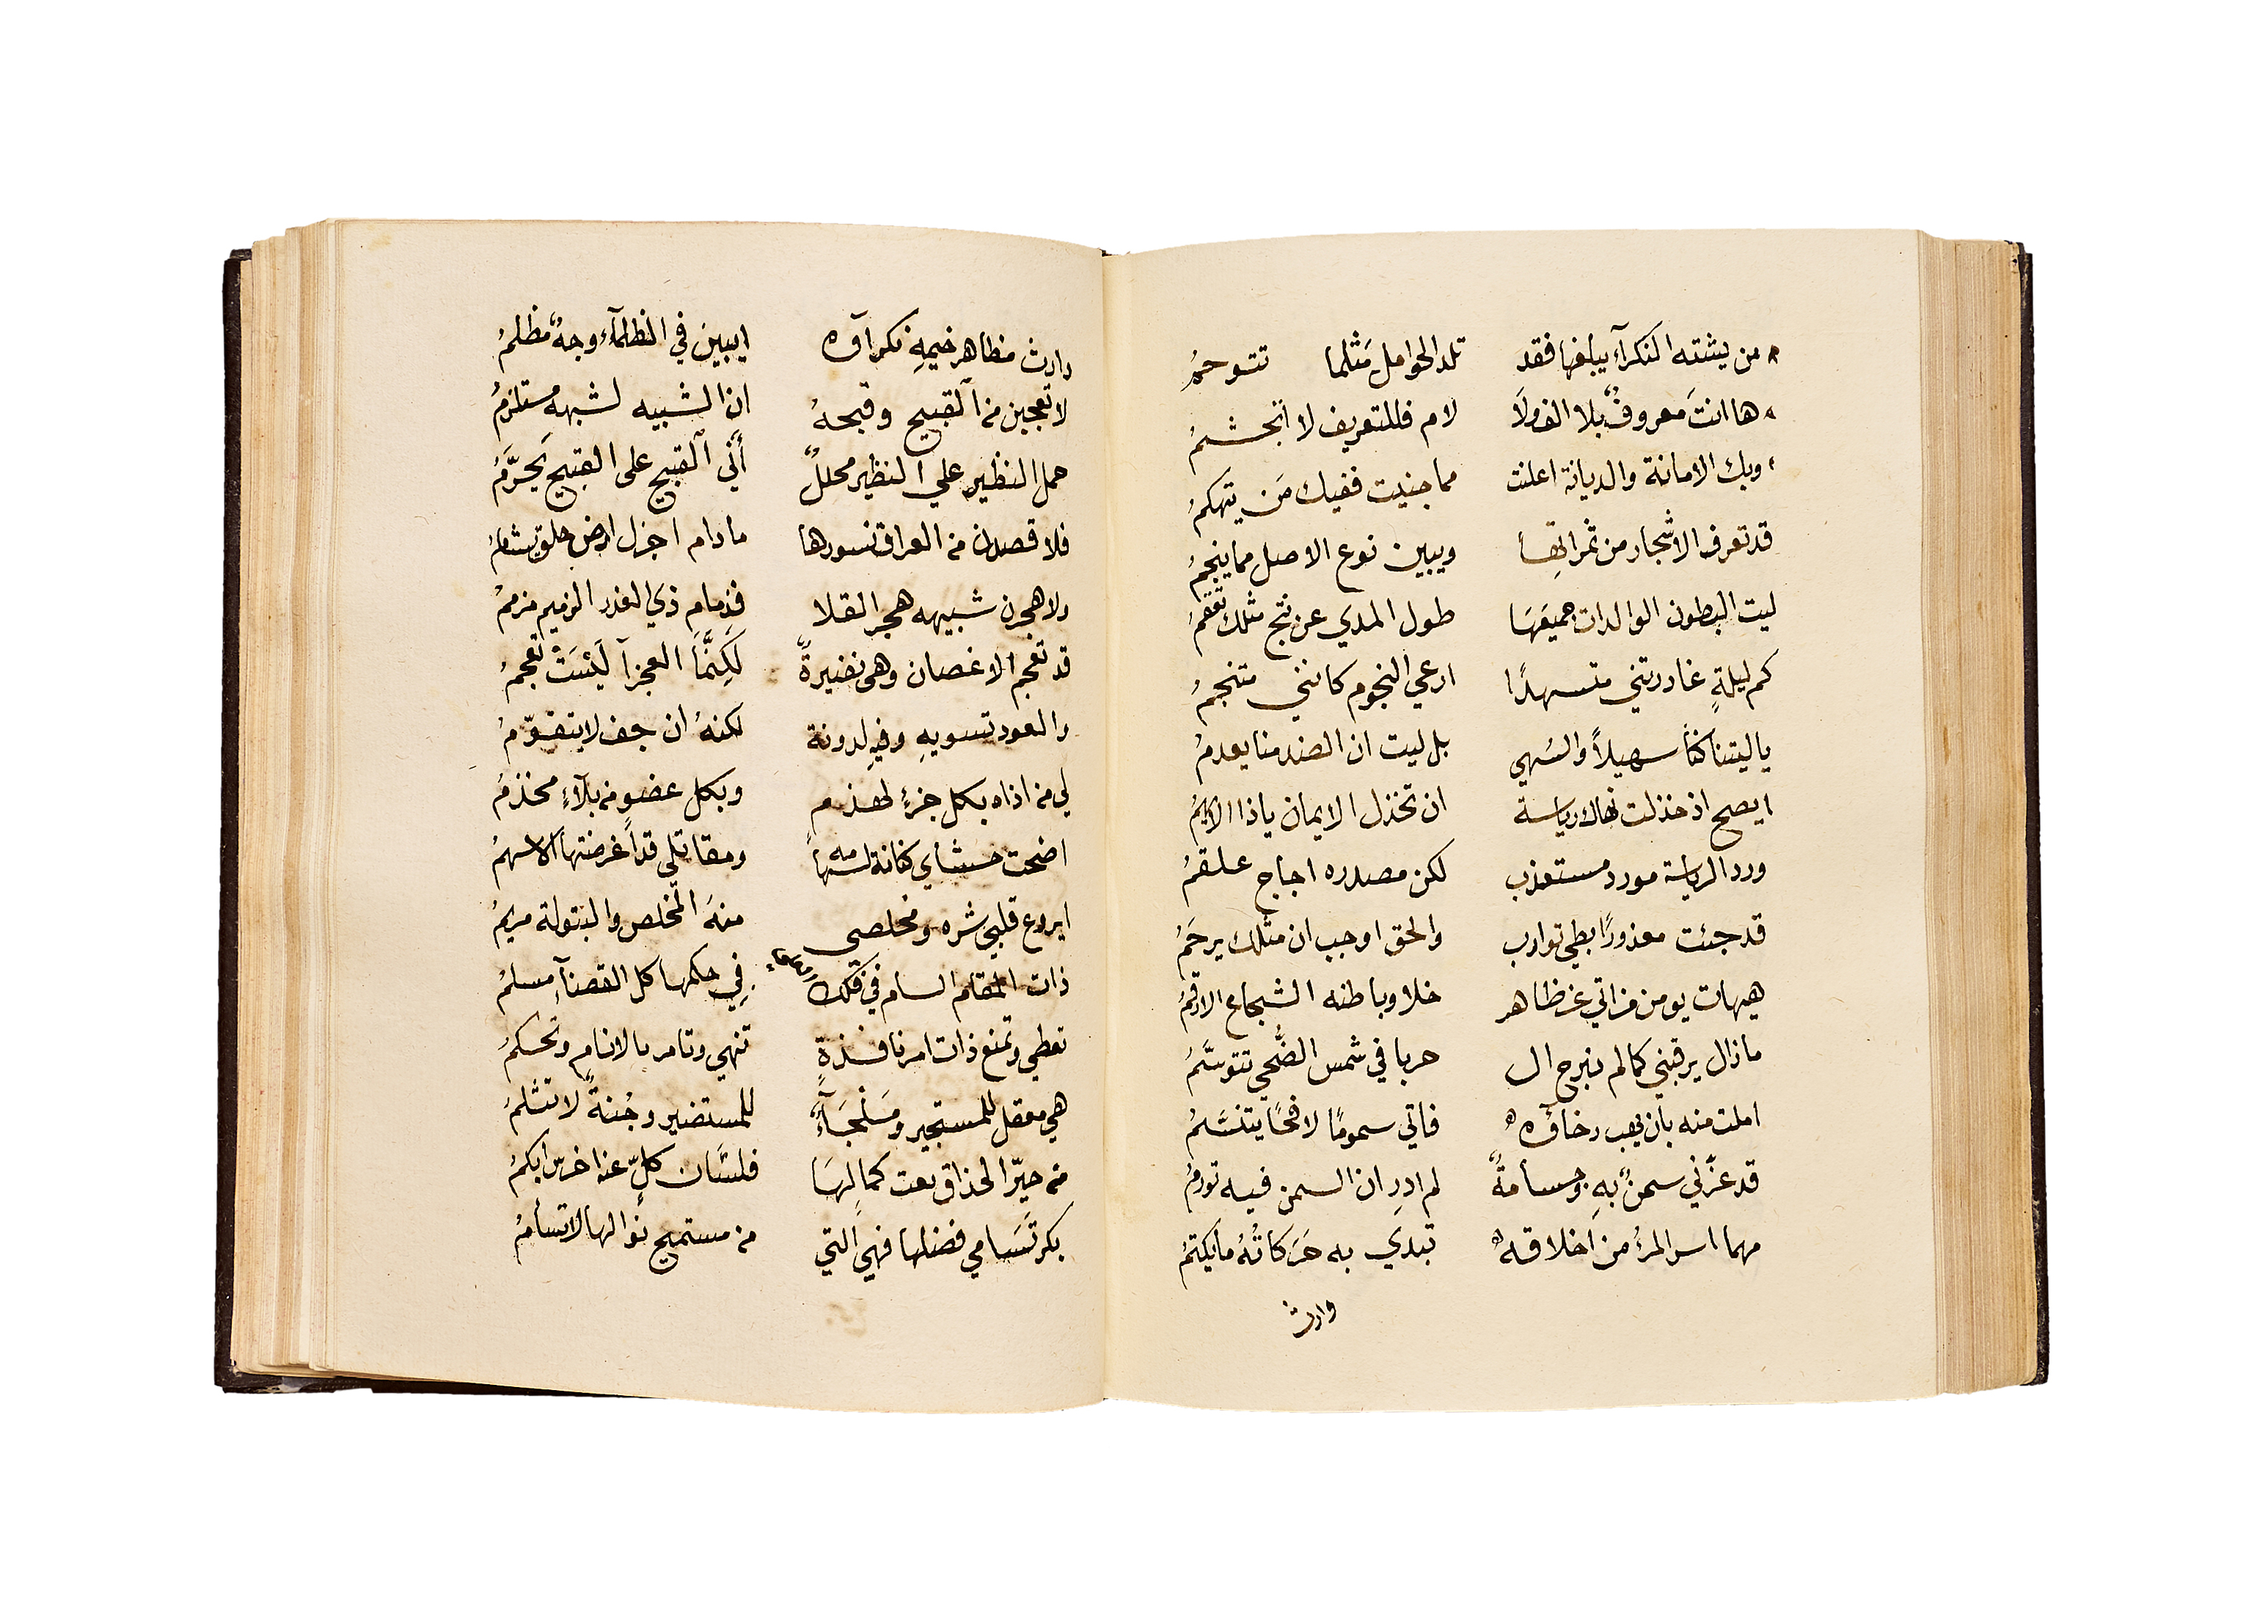 من يشته النكرآء يبلغها فقد تلد الحوامل مَثلما تتوحمُ
ها انتَ معروفٌ بلا الف ولَا لام فللتعريف لا اتجشمُ
وبك الامانة والديانة اعلنت مما جنيت ففيك مَن يتهكمُ
قد تعرف الاشجار من ثمراتِها ويبين نوع الاصل مما ينجمُ
ليت البطون الوالدات جميعَهَا طول المدي عن نتج مثلك تعقمُ
كم ليلةٍ غادرتني متسهدًا ارعي النجوم كانني متنجمُ
يا ليتنا كنا سهيلاً والسُهي بل ليت ان الضد منا يعدمُ
ايصح اذ خذلت نهاك رياسة ان تخذل الايمان يا ذا
ورد الرياسة مورد مستعذب لكن مصدره اجاج علقمُ
قد جئت معذورًا بطي توارب والحق اوجب ان مثلك يرحَمُ
هيهات يومن من اتي عن ظاهر خلا وباطنه الشجاع الارقمُ
ما زال يرقبني كما لم تبرح ال حربا في شمس الضُحي تتوسَّمُ
املت منه بان يهب رخآؤه فاتي سمومًا لافحًا يتنسَّمُ
قد غرّني سمنٌ بهِ وجسأمةٌ لم ادرِ ان السمن فيه تورمُ
مهما اسر المرءُ من اخلاقهِ تبدي به حَرَكاتُهُ ما يكتمُ
وارت
وارت مظاهر خيمهِ نكرآؤه ايبين في الظلمآء وجهٌ مظلمُ
لا تعجبن من القبيح وقبحهُ ان الشبيه لشبهه مستلزمُ
حمل النظير علي النظير محللٌ أَنَّي القبيح على القبيح يَحرَّمُ
فلاقصدن من العراق نسورها ما دام اجزل ارض جلق يشامُ
ولاهجرن شبيهه هجر القلا فذمام ذي الغدر الزنيم مزممُ
قد تعجم الاغصان وهي نضيرةٌ لَكِنَّمَا العجرآ لَيْسَتْ تعجمُ
والعود تسويهِ وفيهِ لدونة لكنهُ ان جف لا يتقوّمُ
لي من اذاه بكل جزءٍ لهذم وبكل عضو من بلآءٍ مخذمُ
اضحت حشاي كنانة لسهامه ومقاتلي قد أغرضتها الاسهمُ
ايروع قلبي شره ومخلصي منهُ المخلص والبتولة مريمُ
ذات المقام السام في فلك في حكمها كل القضآءِ مسلمُ
تعطي وتمنع ذات امر نافذةٍ تنهي وتامر بالانام وتحكمُ
هي معقل للمستجير ومَلْجَأٌ للمستضير وجُنةٌ لا تثلمُ
من حيّر الحذاق نعت كمالِهَا فلسَان كلٍّ عندا خرّس ابكمُ
بكر تَسَامي فضلها فهي التي من مستميح نوالها لا تسأمُ